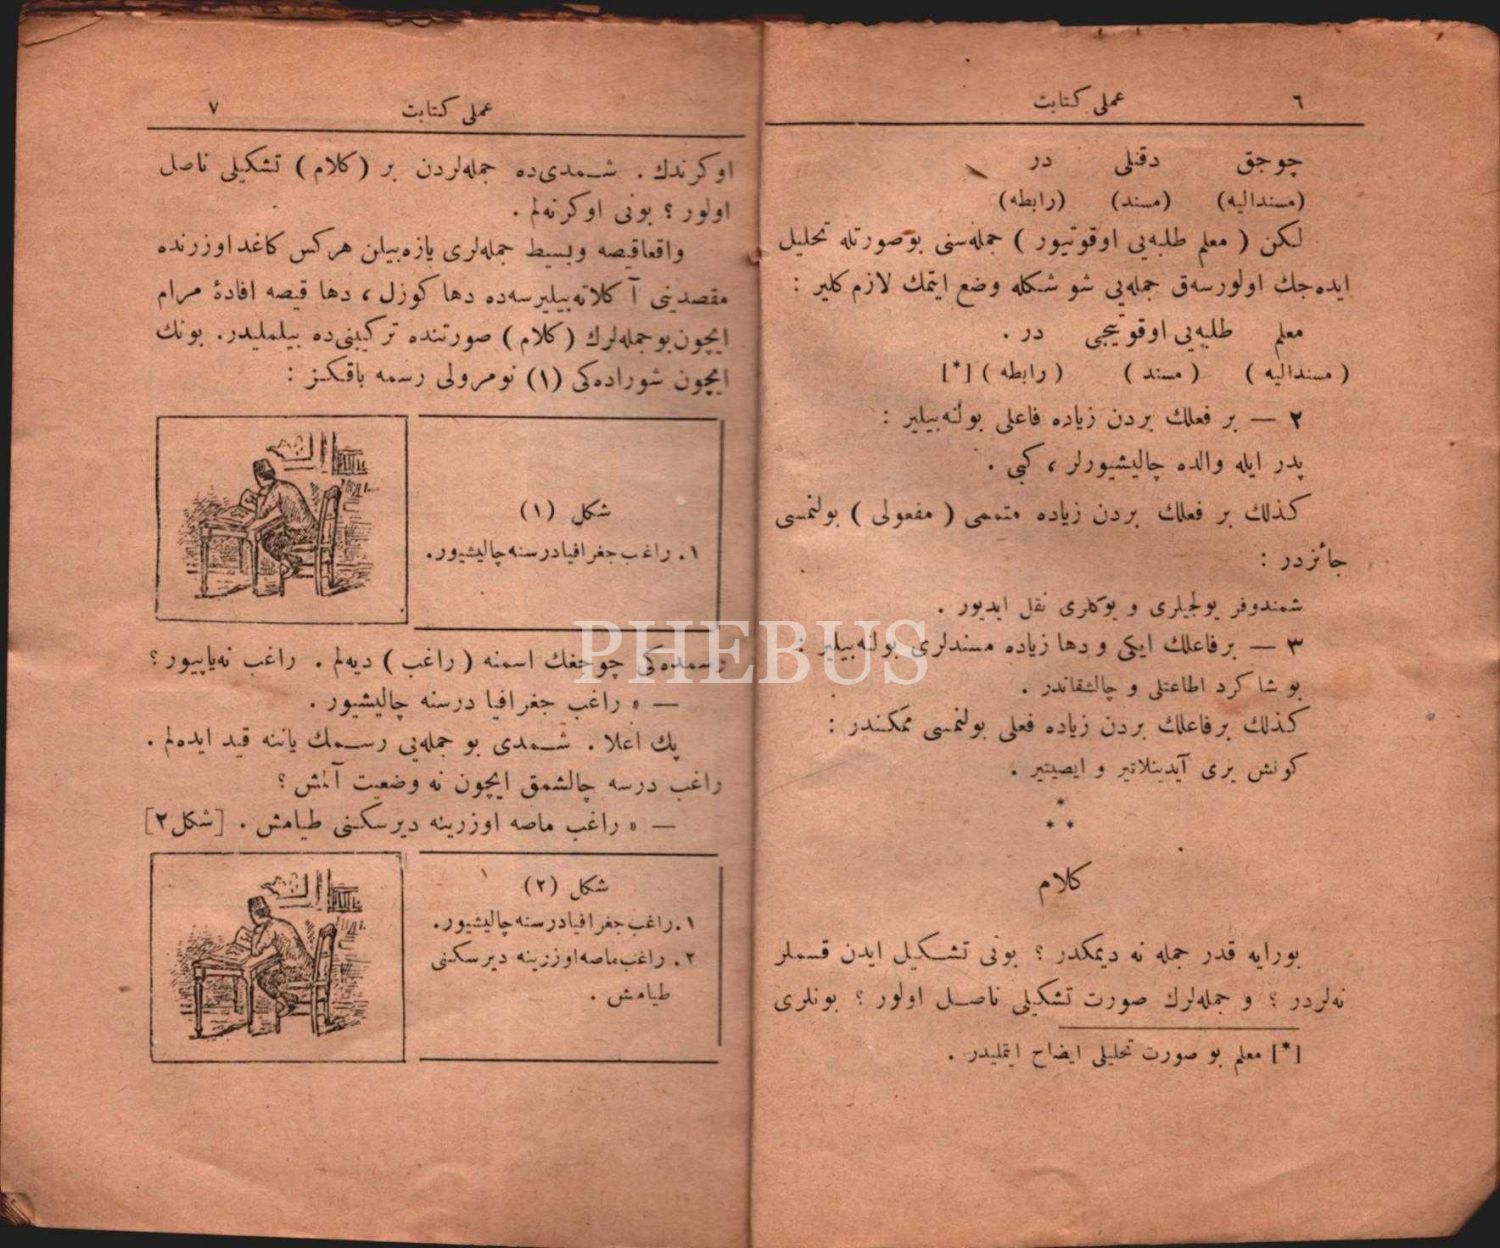 ٦
عملی كتابت
چوجق دقتلی در
(مسندالیه) (مسند) (رابطه)
لكن ( معلم طلبه‌یی اوقوتیور ) جمله‌سنی بوصورتله تحلیل
ایده‌جك اولورسه‌ق جمله‌یی شو شكله وضع ایتمك لازم كلیر :
معلم طلبه‌یی اوقوتیجی در .
( مسندالیه ) ( مسند ) ( رابطه ) [*]
٢ — بر فعلك بردن زیاده فاعلی بولنه‌بیلیر :
پدر ایله والده چالیشیورلر ، كبی .
كذلك بر فعلك بردن زیاده متممی ( مفعولی ) بولنمسی
جائزدر :
شمندوفر یولجیلری و یوكلری نقل ایدیور .
٣ — برفاعلك ایكی و دها زیاده مسندلری بولنه‌بیلیر :
بو شاكرد اطاعتلی و چالشقاندر .
كذلك برفاعلك بردن زیاده فعلی بولنمسی ممكندر :
كونش یری آیدینلاتیر و ایصیتیر .
*
* *
كلام
بورایه قدر جمله نه دیمكدر ؟ بونی تشكیل ایدن قسملر
نه‌لردر ؟ و جمله‌لرك صورت تشكیلی ناصل اولور ؟ بونلری
[*] معلم بو صورت تحلیلی ایضاح ایتملیدر .
عملی كتابت
٧
اوكرندك . شمدی‌ده جمله‌لردن بر (كلام) تشكیلی ناصل
اولور ؟ بونی اوكرنه‌لم .
واقعاقیصه وبسیط جمله‌لری یازه‌بیلن هركس كاغد اوزرنده
مقصدینی آكلاته‌بیلیرسه‌ده دها كوزل ، دها قیصه افادۀ مرام
ایچون بوجمله‌لرك (كلام) صورتنده تركیبنی‌ده بیلملیدر. بونك
ایچون شوراده‌كی (١) نومرولی رسمه باقكز :
شكل (١)
١. راغب جغرافیا درسنه چالیشیور.
رسمده‌كی چوجغك اسمنه (راغب) دیه‌لم . راغب نه‌یاپیور ؟
— » راغب جغرافیا درسنه چالیشیور .
پك اعلا . شمدی بو جمله‌یی رسمك یاننه قید ایده‌لم .
راغب درسه چالشمق ایچون نه وضعیت آلمش ؟
— » راغب ماصه اوزرینه دیرسكنی طیامش . [شكل ٢]
شكل (٢)
١. راغب جغرافیا درسنه چالیشیور.
٢. راغب ماصه اوزرینه دیرسكنی
طیامش .
PHEBUS